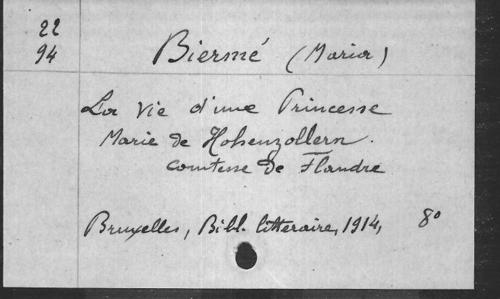 22
94
Biermé (Maria)
La Vie d'une Princesse
Marie de Hohenzollern.
comtesse de Flandre
Bruxelles, Bibl. littéraire, 1914, 8°